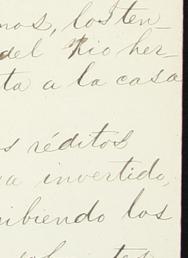 nos, los ten
del Rio her-
ta a la casa
s réditos
a invertido,
ibiendo los